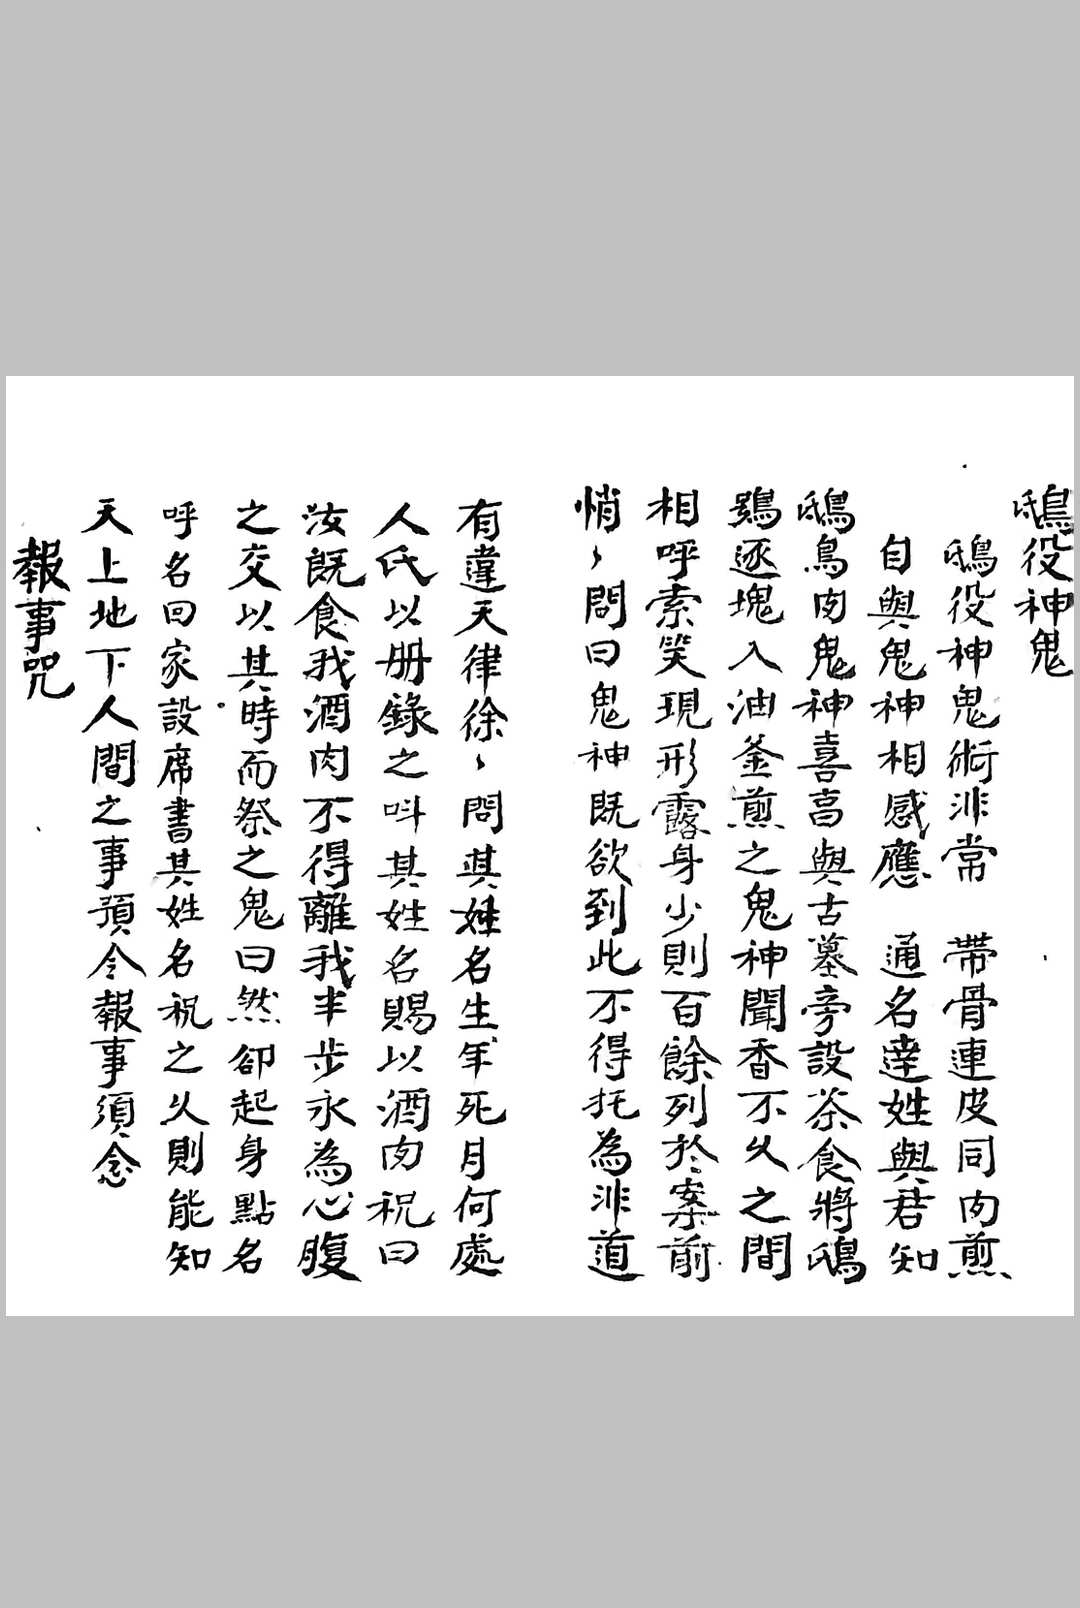 鴟役神鬼
鴟役神鬼術非常 帶骨連皮同肉煎
自與鬼神相感應 通名達姓與君知
鴟鳥肉鬼神喜髙與古墓旁設茶食將鴟
鵶逐塊入油釜煎之鬼神聞香不久之間
相呼索笑現形露身少則百餘列於案前
悄〻問曰鬼神既欲到此不得托為非道
有違天律徐〻問其姓名生年死月何處
人氏以册錄之呌其姓名賜以酒肉祝曰
汝既食我酒肉不得離我半步永為心腹
之交以其時而祭之鬼曰然卻起身點名
呼名回家設席書其姓名祝之久則能知
天上地下人間之事預令報事須念
報事咒